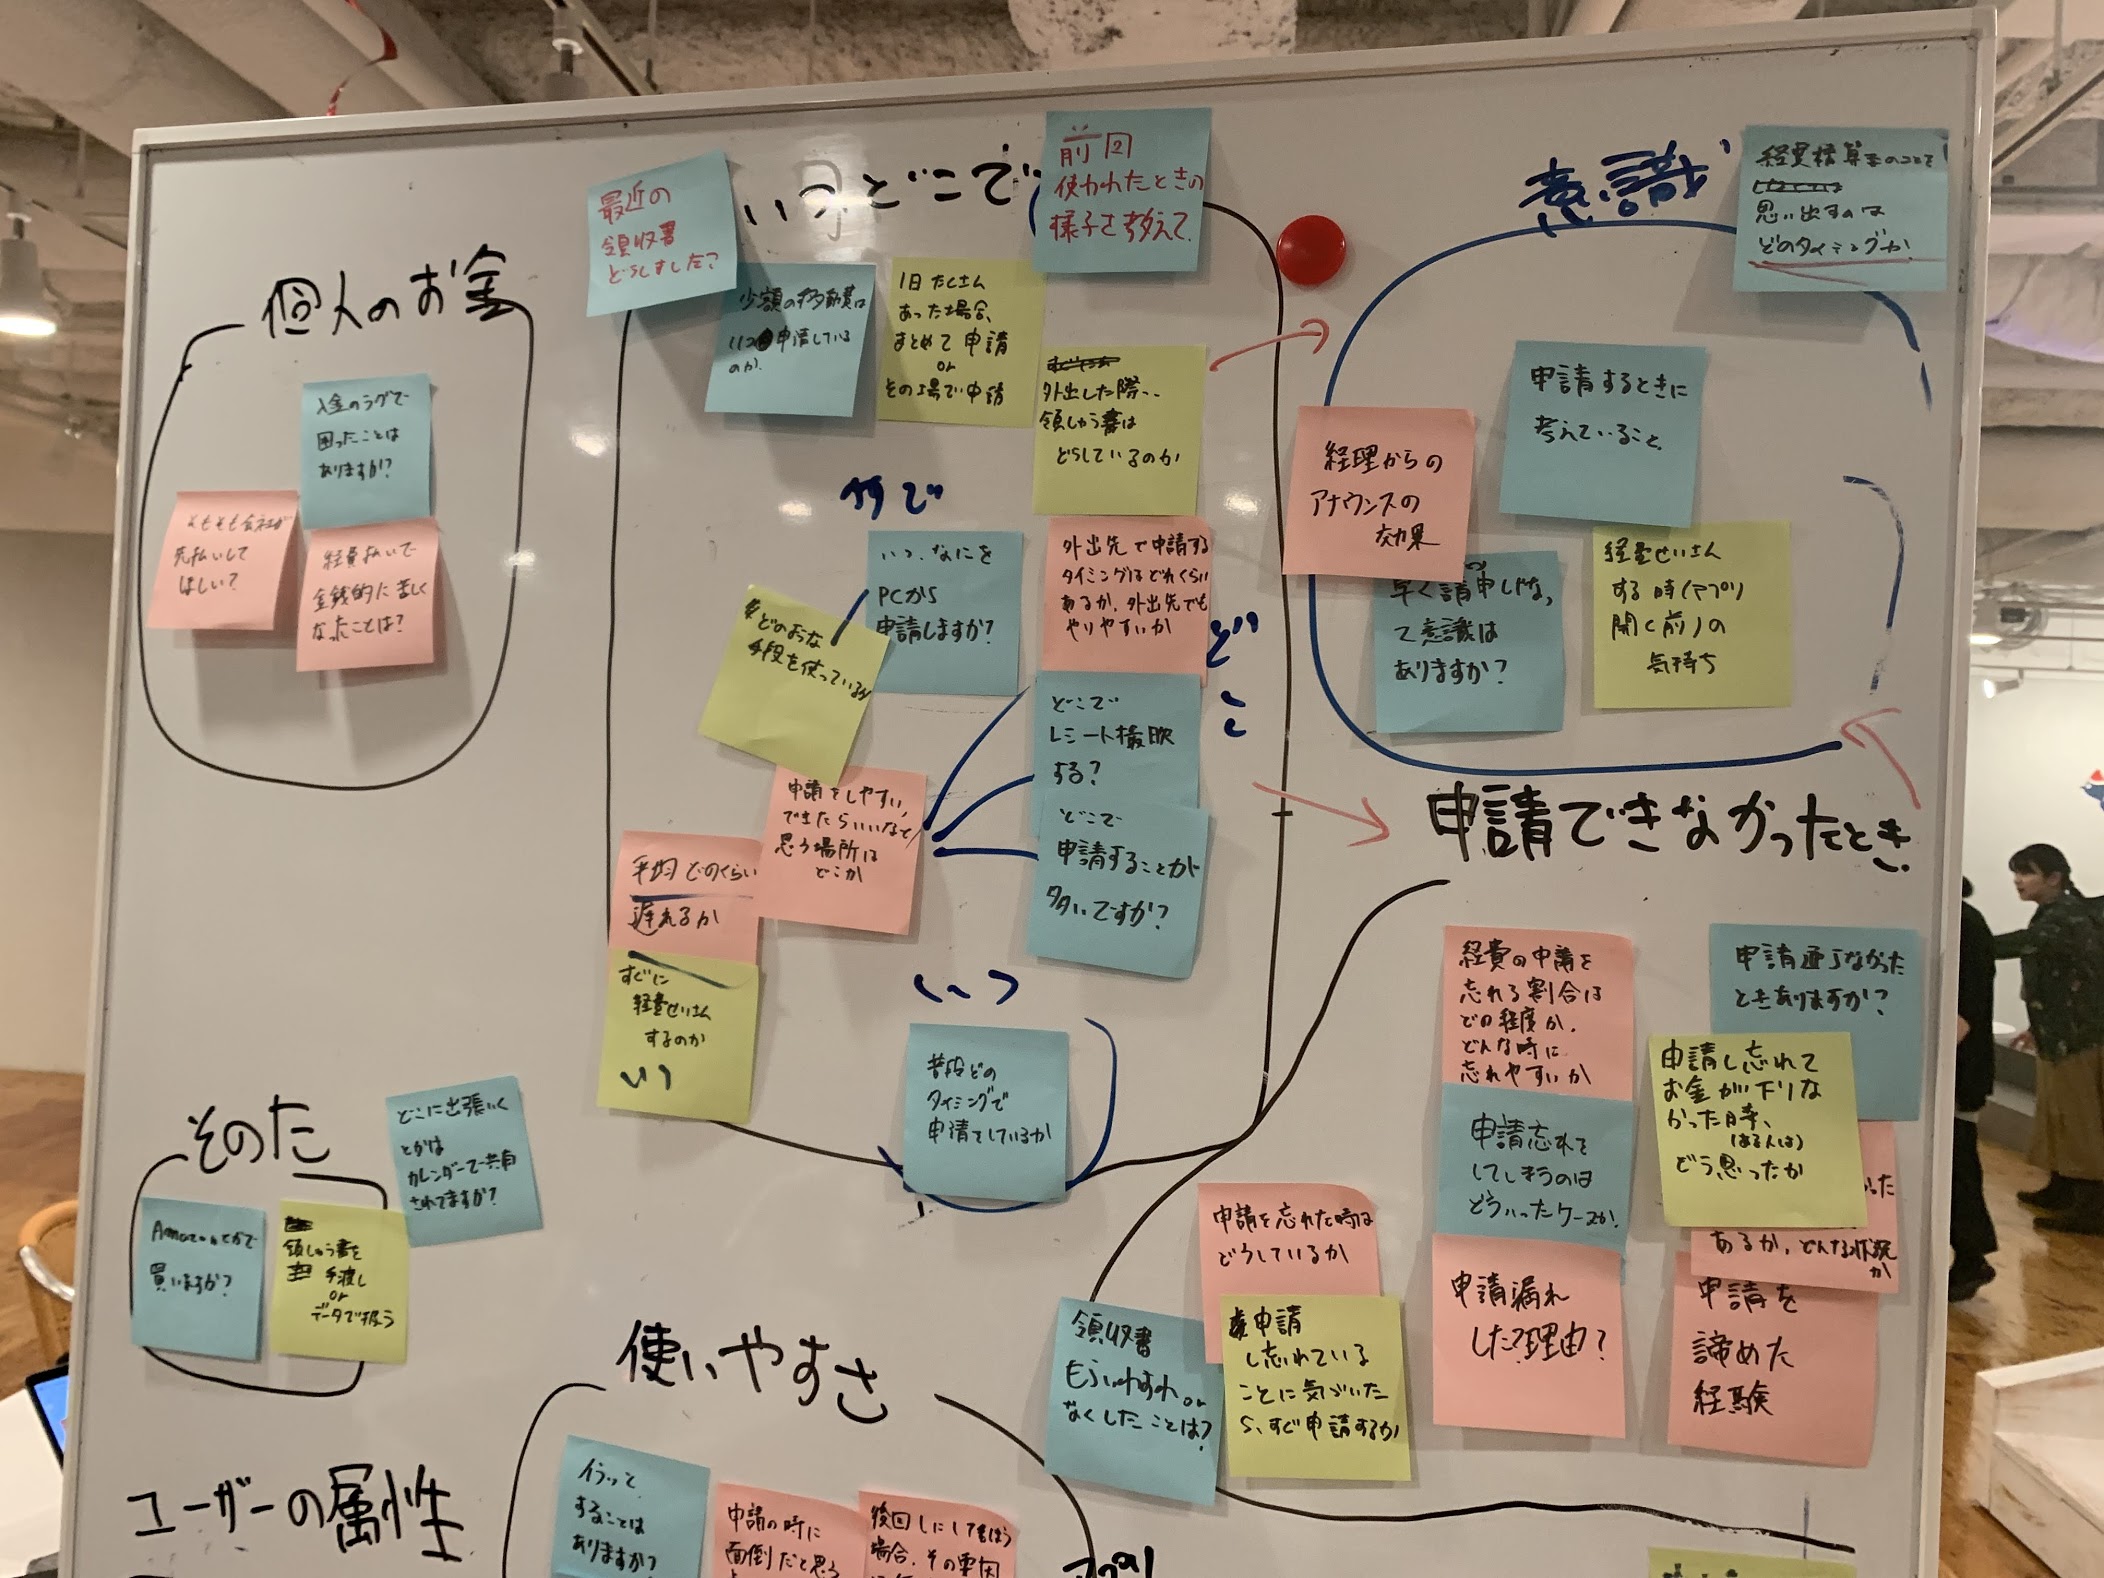 個人のお金
入金のラグで
困ったことは
ありますか?
そもそも会社が
先払いして
ほしい?
経費払いで
金銭的に苦しく
なったことは?
いつどこで
最近の
領収書
どうしました?
前回
使われたときの
様子を教えて
少額の移動費は
いつ申請している
のか
1日たくさん
あった場合、
まとめて申請
or
その場で申請
外出した際、
領しゅう書は
どうしているのか
何で
いつ、なにを
PCから
申請しますか?
どのような
手段を使っているか
外出先で申請する
タイミングはどれくらい
あるか、外出先でも
やりやすいか
どこ
どこで
レシート撮影
する?
どこで
申請することが
多いですか?
申請をしやすい、
できたらいいなと
思う場所は
どこか
平均どのくらい
遅れるか
すぐに
経費せいさん
するのか
いつ
いつ
普段どの
タイミングで
申請をしているか
意識
経費精算のことを
思い出すのは
どのタイミングか
申請するときに
考えていること
経理からの
アナウンスの
効果
早く請申しなっ
て意識は
ありますか?
経費せいさん
する時(アプリ
開く前)の
気持ち
申請できなかったとき
経費の申請を
忘れる割合は
どの程度か。
どんな時に
忘れやすいか
申請通らなかった
ときありますか?
申請し忘れて
お金が下りな
かった時、
(ある人は)
どう思ったか
申請忘れを
してしまうのは
どういったケースか
った
あるか、どんな状況
か
申請漏れ
した理由?
申請を
諦めた
経験
申請を忘れた時は
どうしているか
領収書
もらいわすれor
なくしたことは?
申請
し忘れている
ことに気づいた
ら、すぐ申請するか
そのた
どこに出張いく
とかは
カレンダーで共有
されてますか?
Amazonとかで
買いますか?
領しゅう書を
手渡し
or
データで扱う
使いやすさ
イラって
することは
ありますか?
申請の時に
面倒だと思う
後回しにしてしまう
場合、その要因
ユーザーの属性